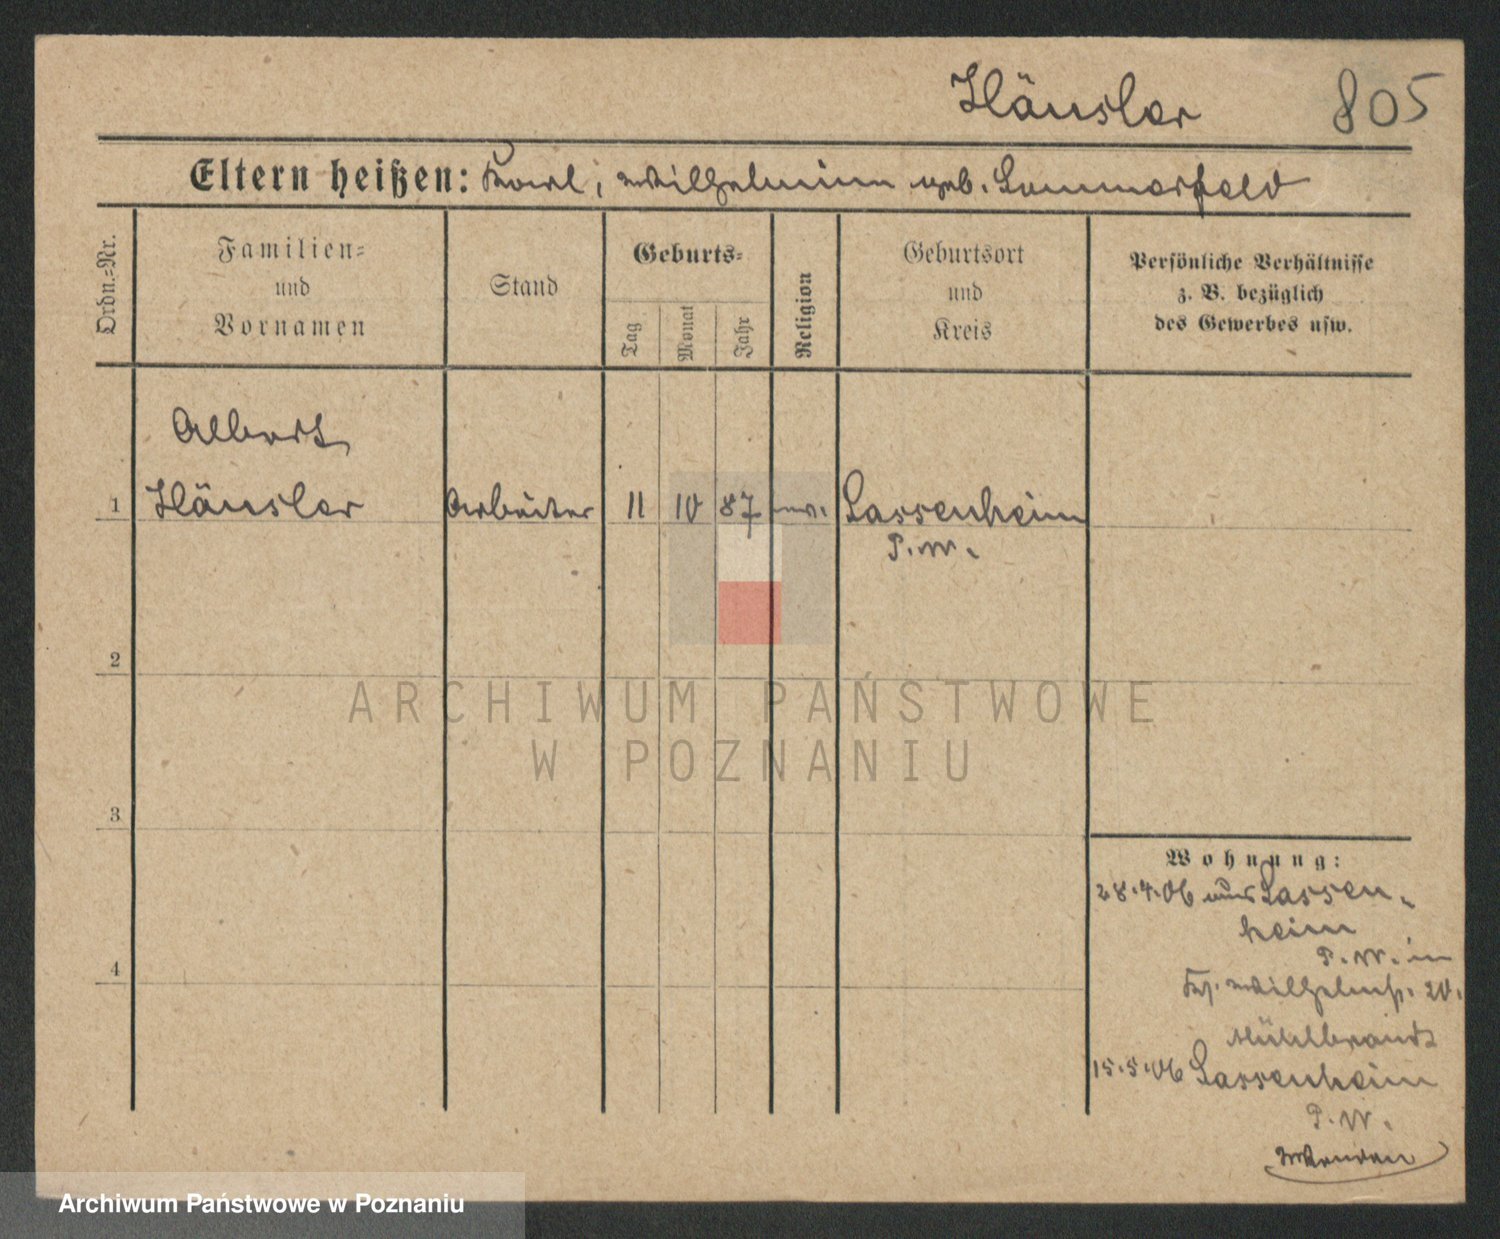 Häusler 805
Eltern heißen: Karl, Wilhelmine geb. Sommerfeld
Ordn.=Nr.
Familien=
und
Vornamen
Stand
Geburts=
Tag
Monat
Jahr
Religion
Geburtsort
und
Kreis
Persönliche Verhältnisse
z. B. bezüglich
des Gewerbes usw.
Albert
1 Häusler Arbeiter 11 10 87 ev. Sassenheim
P. W.
2
3
4
Wohnung:
28.4.06 aus Sassen-
heim
P. W. in
Wilhelmstr. 20.
Mühlbrandt
15.5.06 Sassenheim
P. W.
ARCHIWUM PAŃSTWOWE
W POZNANIU
Archiwum Państwowe w Poznaniu